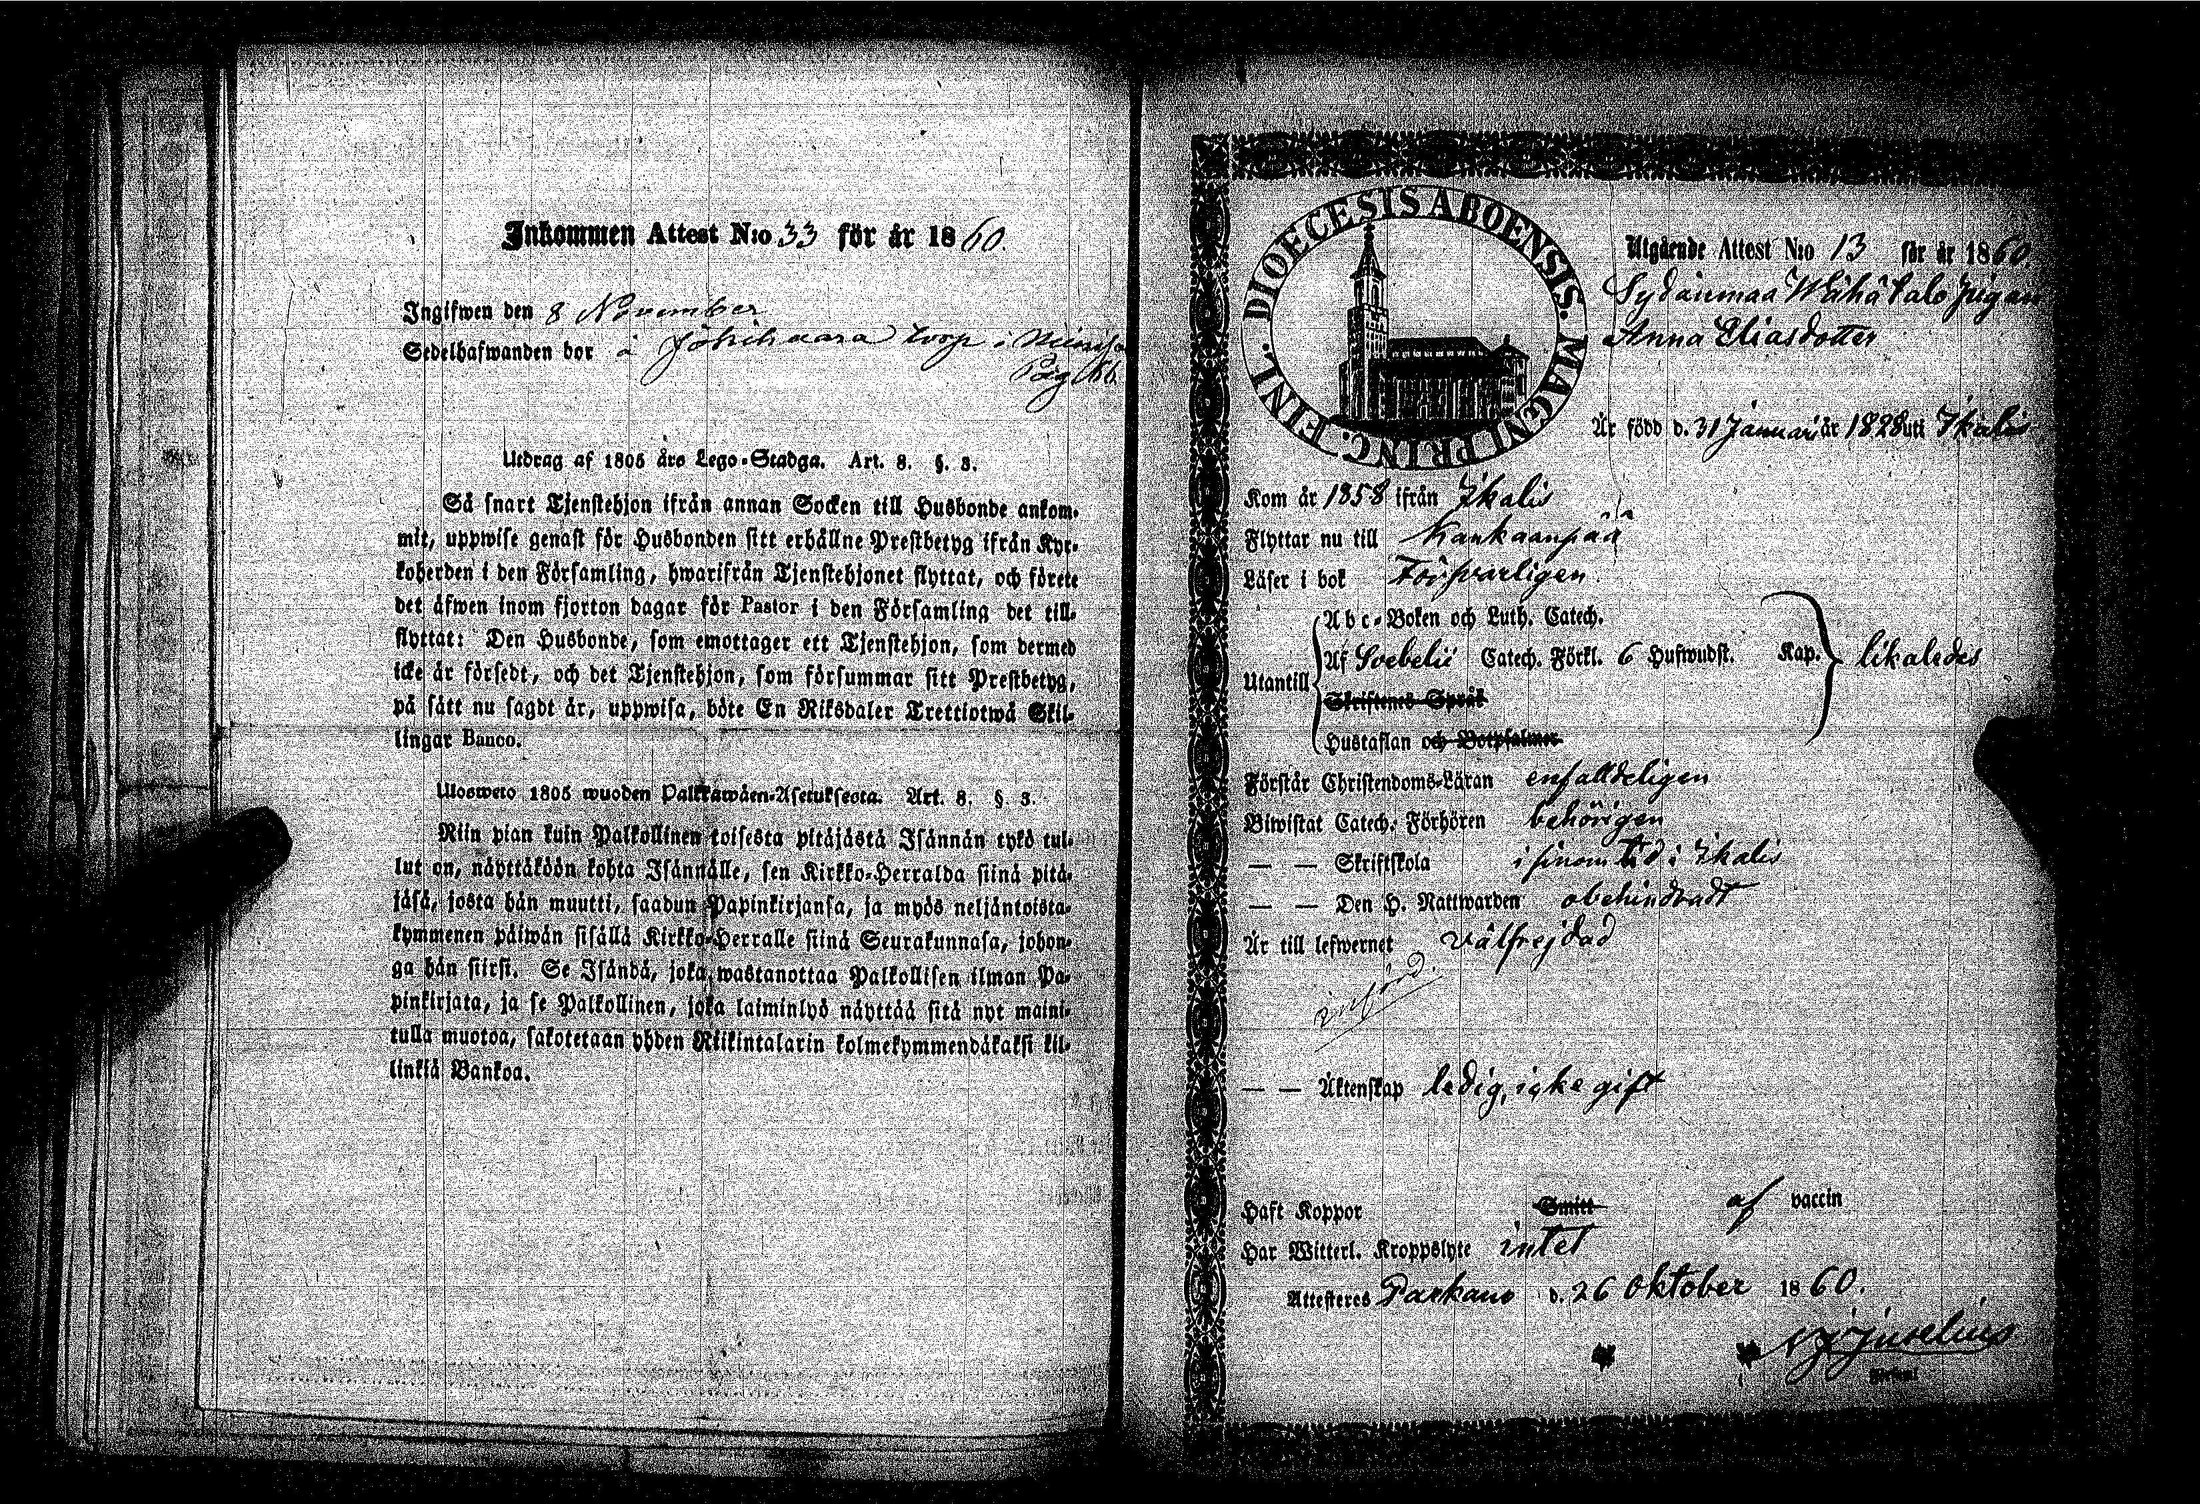 Inkommen Attest N:o 33 för år 1860.
Ingifwen den 8 November
Sedelhafwanden bor å torp i
Pag
Utdrag af 1805 års Lego-Stadga. Art. 8. §. 3.
Så snart Tjenstehjon ifrån annan Socken till Husbonde ankom-
mit, uppwise genast för Husbonden sitt erhållne Prestbetyg ifrån Kyr-
koherden i den Församling, hwarifrån Tjenstehjonet flyttat, och förete
det äfwen inom fjorton dagar för Pastor i den Församling det till-
flyttat: Den Husbonde, som emottager ett Tjenstehjon, som dermed
icke är försedt, och det Tjenstehjon, som försummar sitt Prestbetyg,
på sätt nu sagdt är, uppwisa, böte En Riksdaler Trettiotwå Skil-
lingar Banco.
Ulosweto 1805 wuoden Palkkawäen-Asetuksesta. Art. 8. § 3.
Niin pian kuin Palkollinen toisesta pitäjästä Isännän tykö tul-
lut on, näyttäköön kohta Isännälle, sen Kirkko-Herralda siinä pitä-
jäsä, josta hän muutti, saadun Papinkirjansa, ja myös neljäntoista-
kymmenen päiwän sisällä Kirkko-Herralle siinä Seurakunnasa, johon-
ga hän siirsi. Se Isändä, joka wastanottaa Palkollisen ilman Pa-
pinkirjata, ja se Palkollinen, joka laiminlyö näyttää sitä nyt maini-
tulla muotoa, sakotetaan yhden Riikintalarin kolmekymmendäkaksi kil-
linkiä Bankoa.
DIOECESIS ABOENSIS. MAGNI PRINC. FINL.
Utgående Attest N:o 13 för år 1860
Sydänmaa Wähätalo Pigan
Anna Eliasdotter
Är född d. 31 Januari år 1828 uti Ikalis
Kom år 1858 ifrån Ikalis
Flyttar nu till Kankaanpää
Läser i bok Försvarligen
Utantill
Abc-Boken och Luth. Catech.
Af Svebelii Catech. Förkl. 6 Hufwudst. Kap. likaledes
Skriftenes Språk
Hustaflan och Botpsalmer
Förstår Christendoms-Läran enfalldeligen
Biwistat Catech. Förhören behörigen
— — Skriftskola i sinom tid i Ikalis
— — Den H. Nattwarden obehindradt
Är till lefwernet välfrejdad
införd.
— — Äktenskap ledig, icke gift
Haft Koppor Smitt af vaccin
Har Witterl. Kroppslyte intet
Attesteres Parkano d. 26 Oktober 1860.
Juselius